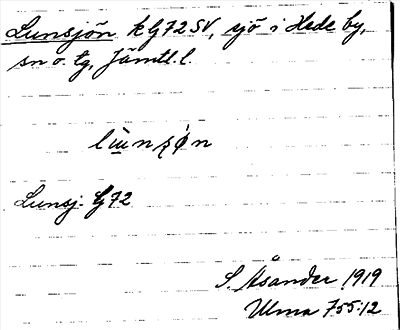 Lunsjön k G72 SV, sjö i Hede by,
sn o. tg, Jämtl. l.
Lunsj. G72
S. Åsander 1919
Ulma 755:12